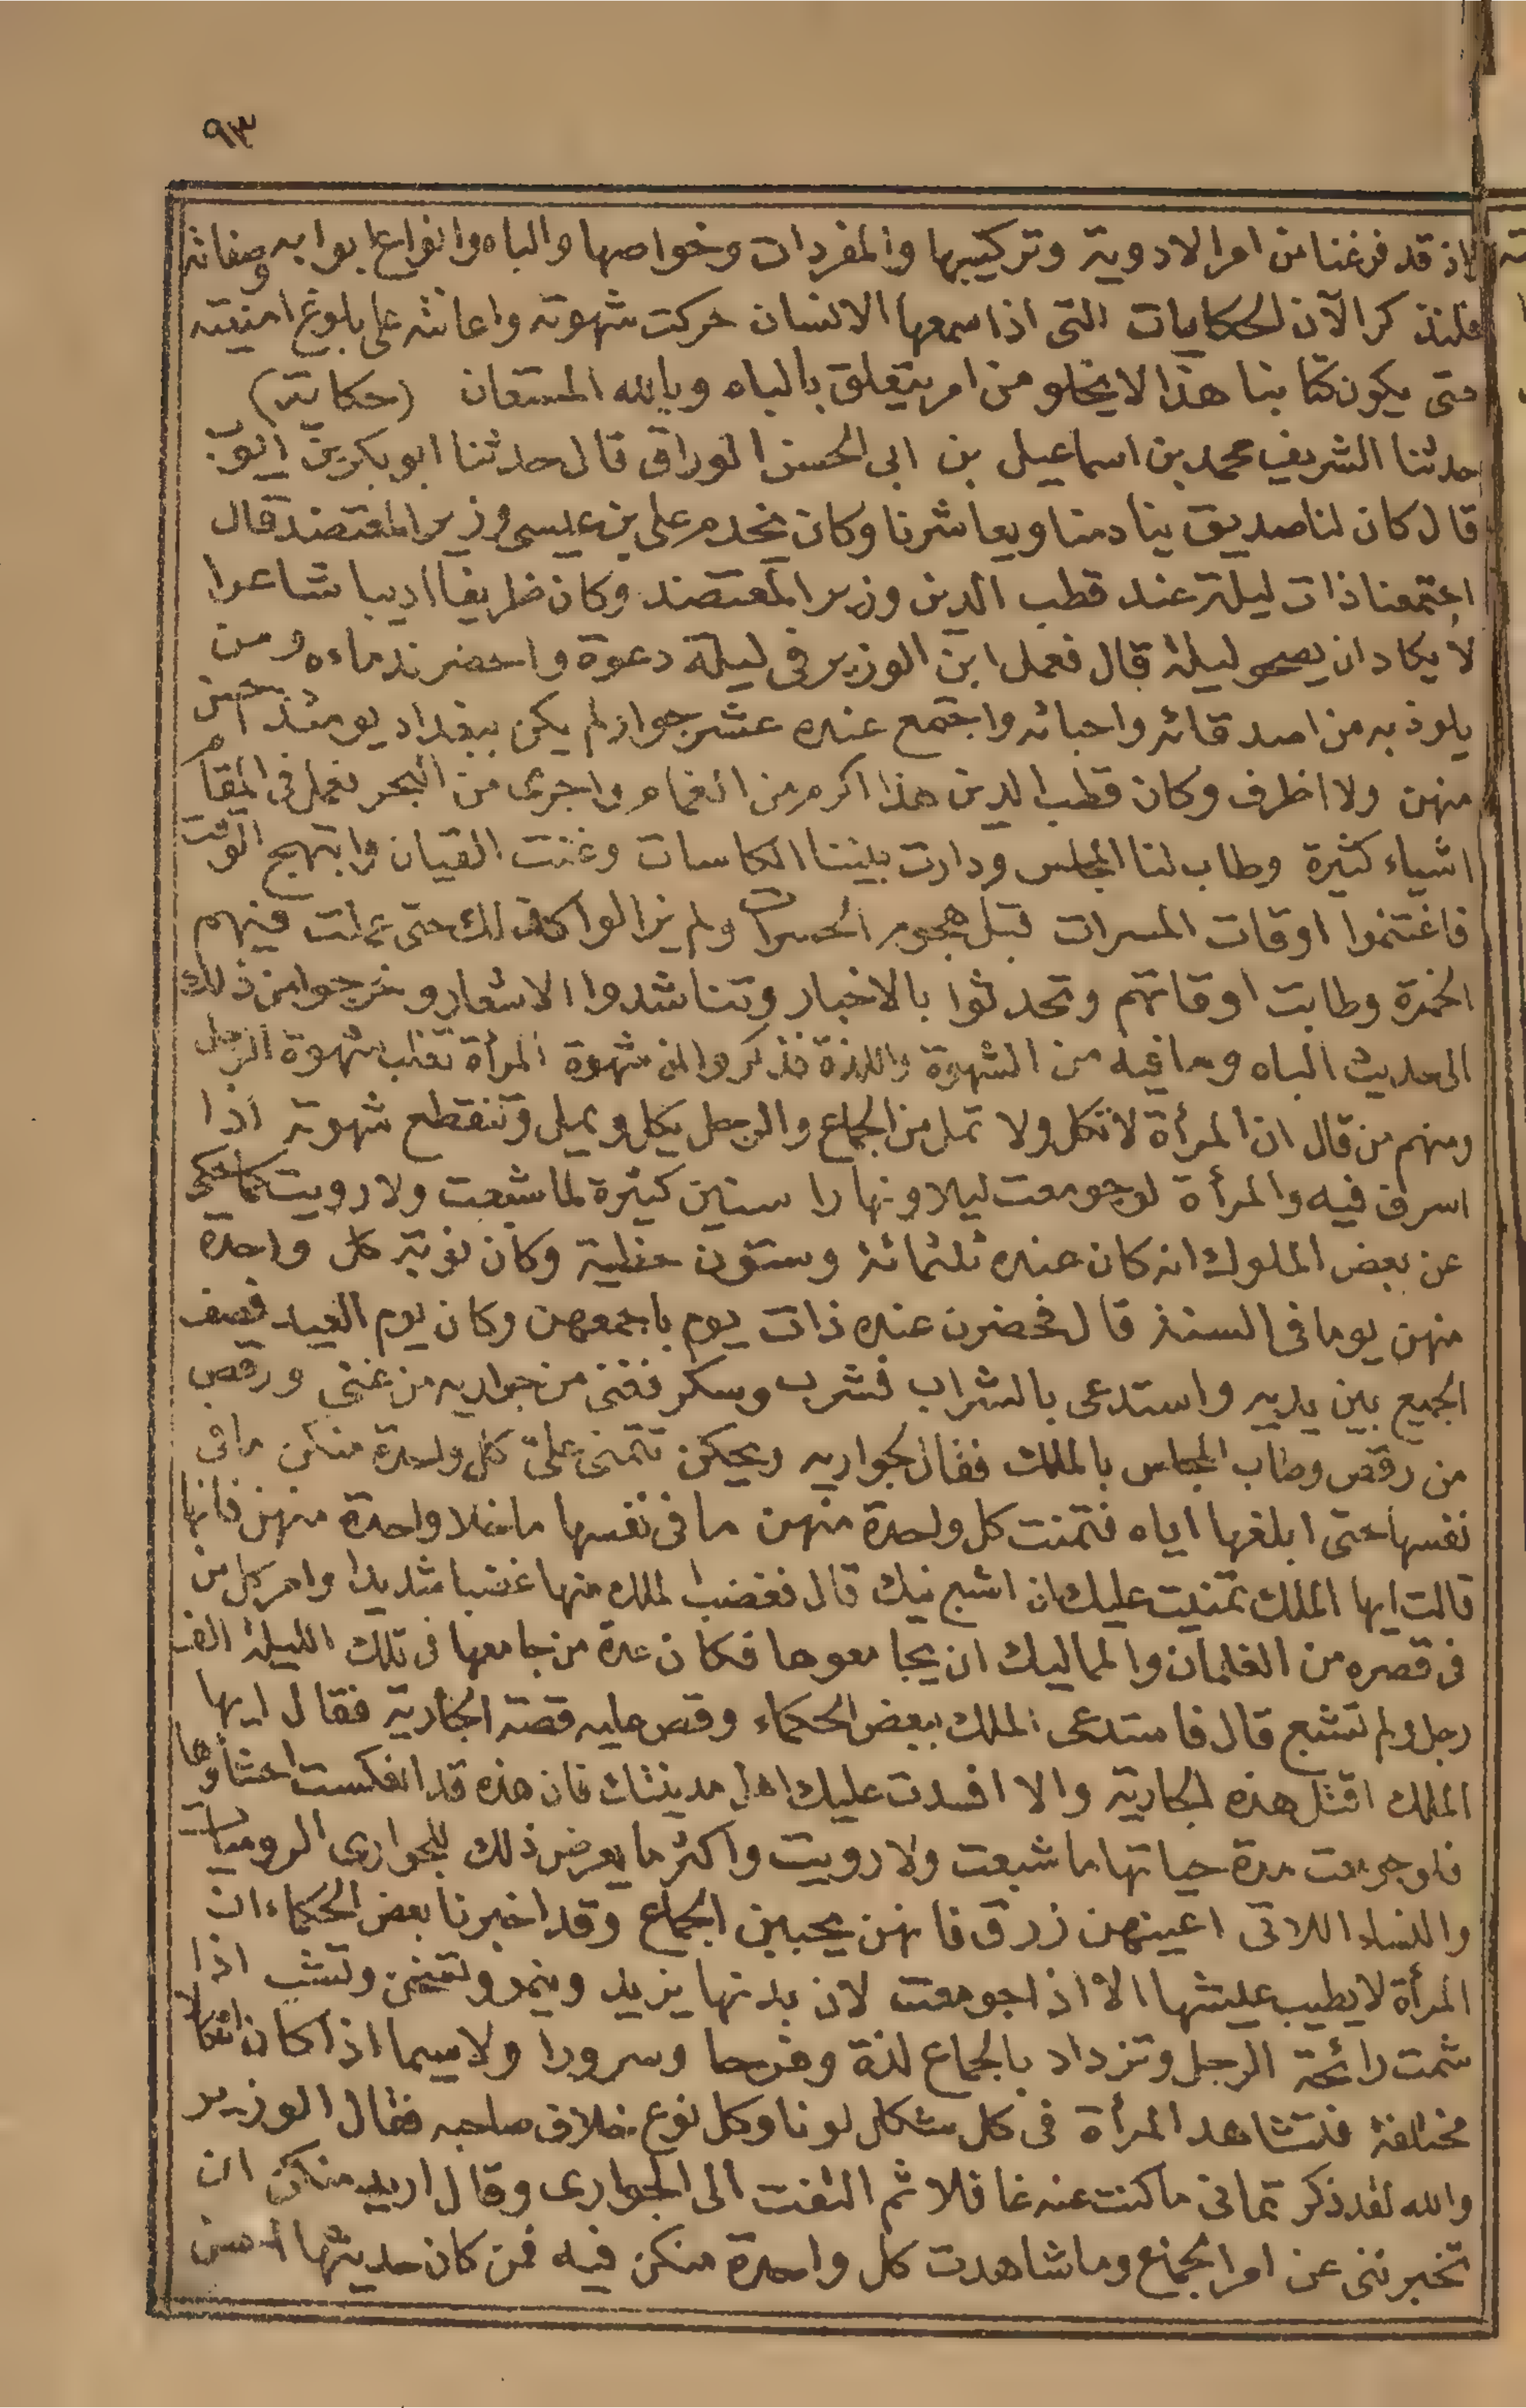 ٩٣
اذ قد فرغنا من امر الادوية وتركيبها والمفردات وخواصها والباه وانواع ابوابه وصفاته
فلنذكر الآن الحكايات التى اذا سمعها الانسان حركت شهوته واعانته على بلوغ امنيته
حتى يكون كتابنا هذا لا يخلو من امر يتعلق بالباه وبالله المستعان (حكاية)
حدثنا الشريف محمد بن اسماعيل بن ابى الحسن الوراق قال حدثنا ابو بكر بن ايوب
قال كان لنا صديق ينادمنا ويعاشرنا وكان يخدم على بن عيسى وزير المعتضد قال
اجتمعنا ذات ليلة عند قطب الدين وزير المعتضد وكان ظريفا اديبا شاعرا
لا يكاد ان يصحو ليلة قال فعمل ابن الوزير فى ليلة دعوة واحضر ندماءه ومن
يلوذ به من اصدقائه واحبائه واجتمع عنده عشر جوار لم يكن ببغداد يومئذ احسن
منهن ولا اظرف وكان قطب الدين هذا اكرم من الغمام واجرى من البحر فعمل فى المقام
اشياء كثيرة وطاب لنا المجلس ودارت بيننا الكاسات وغنت القيان وابتهج الوقت
فاغتنموا اوقات المسرات قبل هجوم الحسرات ولم يزالوا كذلك حتى عملت فيهم
الخمرة وطابت اوقاتهم وتحدثوا بالاخبار وتناشدوا الاشعار وخرجوا من ذلك
الى حديث الباه وما فيه من الشهوة واللذة فذكروا ان شهوة المرأة تغلب شهوة الرجل
ومنهم من قال ان المرأة لا تكل ولا تمل من الجماع والرجل يكل ويمل وتنقطع شهوته اذا
اسرف فيه والمرأة لو جومعت ليلا ونهارا سنين كثيرة لما شبعت ولا رويت كما حكى
عن بعض الملوك انه كان عنده ثلثمائة وستون حظية وكان نوبة كل واحدة
منهن يوما فى السنة قال فحضرن عنده ذات يوم باجمعهن وكان يوم العيد فصف
الجميع بين يديه واستدعى بالشراب فشرب وسكر فغنى من جواريه من غنى ورقص
من رقص وطاب المجلس بالملك فقال لجواريه ويحكن تتمنى على كل واحدة منكن ما فى
نفسها حتى ابلغها اياه فتمنت كل واحدة منهن ما فى نفسها ما خلا واحدة منهن فانها
قالت ايها الملك تمنيت عليك ان اشبع نيك قال فغضب الملك منها غضبا شديدا وامر كل من
فى قصره من الغلمان والمماليك ان يجامعوها فكان عدة من جامعها فى تلك الليلة الف
رجل ولم تشبع قال فاستدعى الملك ببعض الحكماء وقص عليه قصة الجارية فقال ايها
الملك اقتل هذه الجارية والا افسدت عليك اهل مدينتك فان هذه قد انعكست احشاؤها
فلو جومعت مدة حياتها ما شبعت ولا رويت واكثر ما يعرض ذلك للجوارى الروميات
والنساء اللاتى اعينهن زرق فانهن يحببن الجماع وقد اخبرنا بعض الحكماء ان
المرأة لا يطيب عيشها الا اذا جومعت لان بدنها يزيد وينمو وتشب اذا
شمت رائحة الرجل وتزداد بالجماع لذة وفرحا وسرورا ولا سيما اذا كان اشكالا
مختلفة فتشاهد المرأة فى كل شكل لونا وكل نوع خلاف صاحبه فقال الوزير
والله لقد ذكرتمانى ما كنت عنه غافلا ثم التفت الى الجوارى وقال اريد منكن ان
تخبرننى عن امر الجماع وما شاهدت كل واحدة منكن فيه فمن كان حديثها احسن